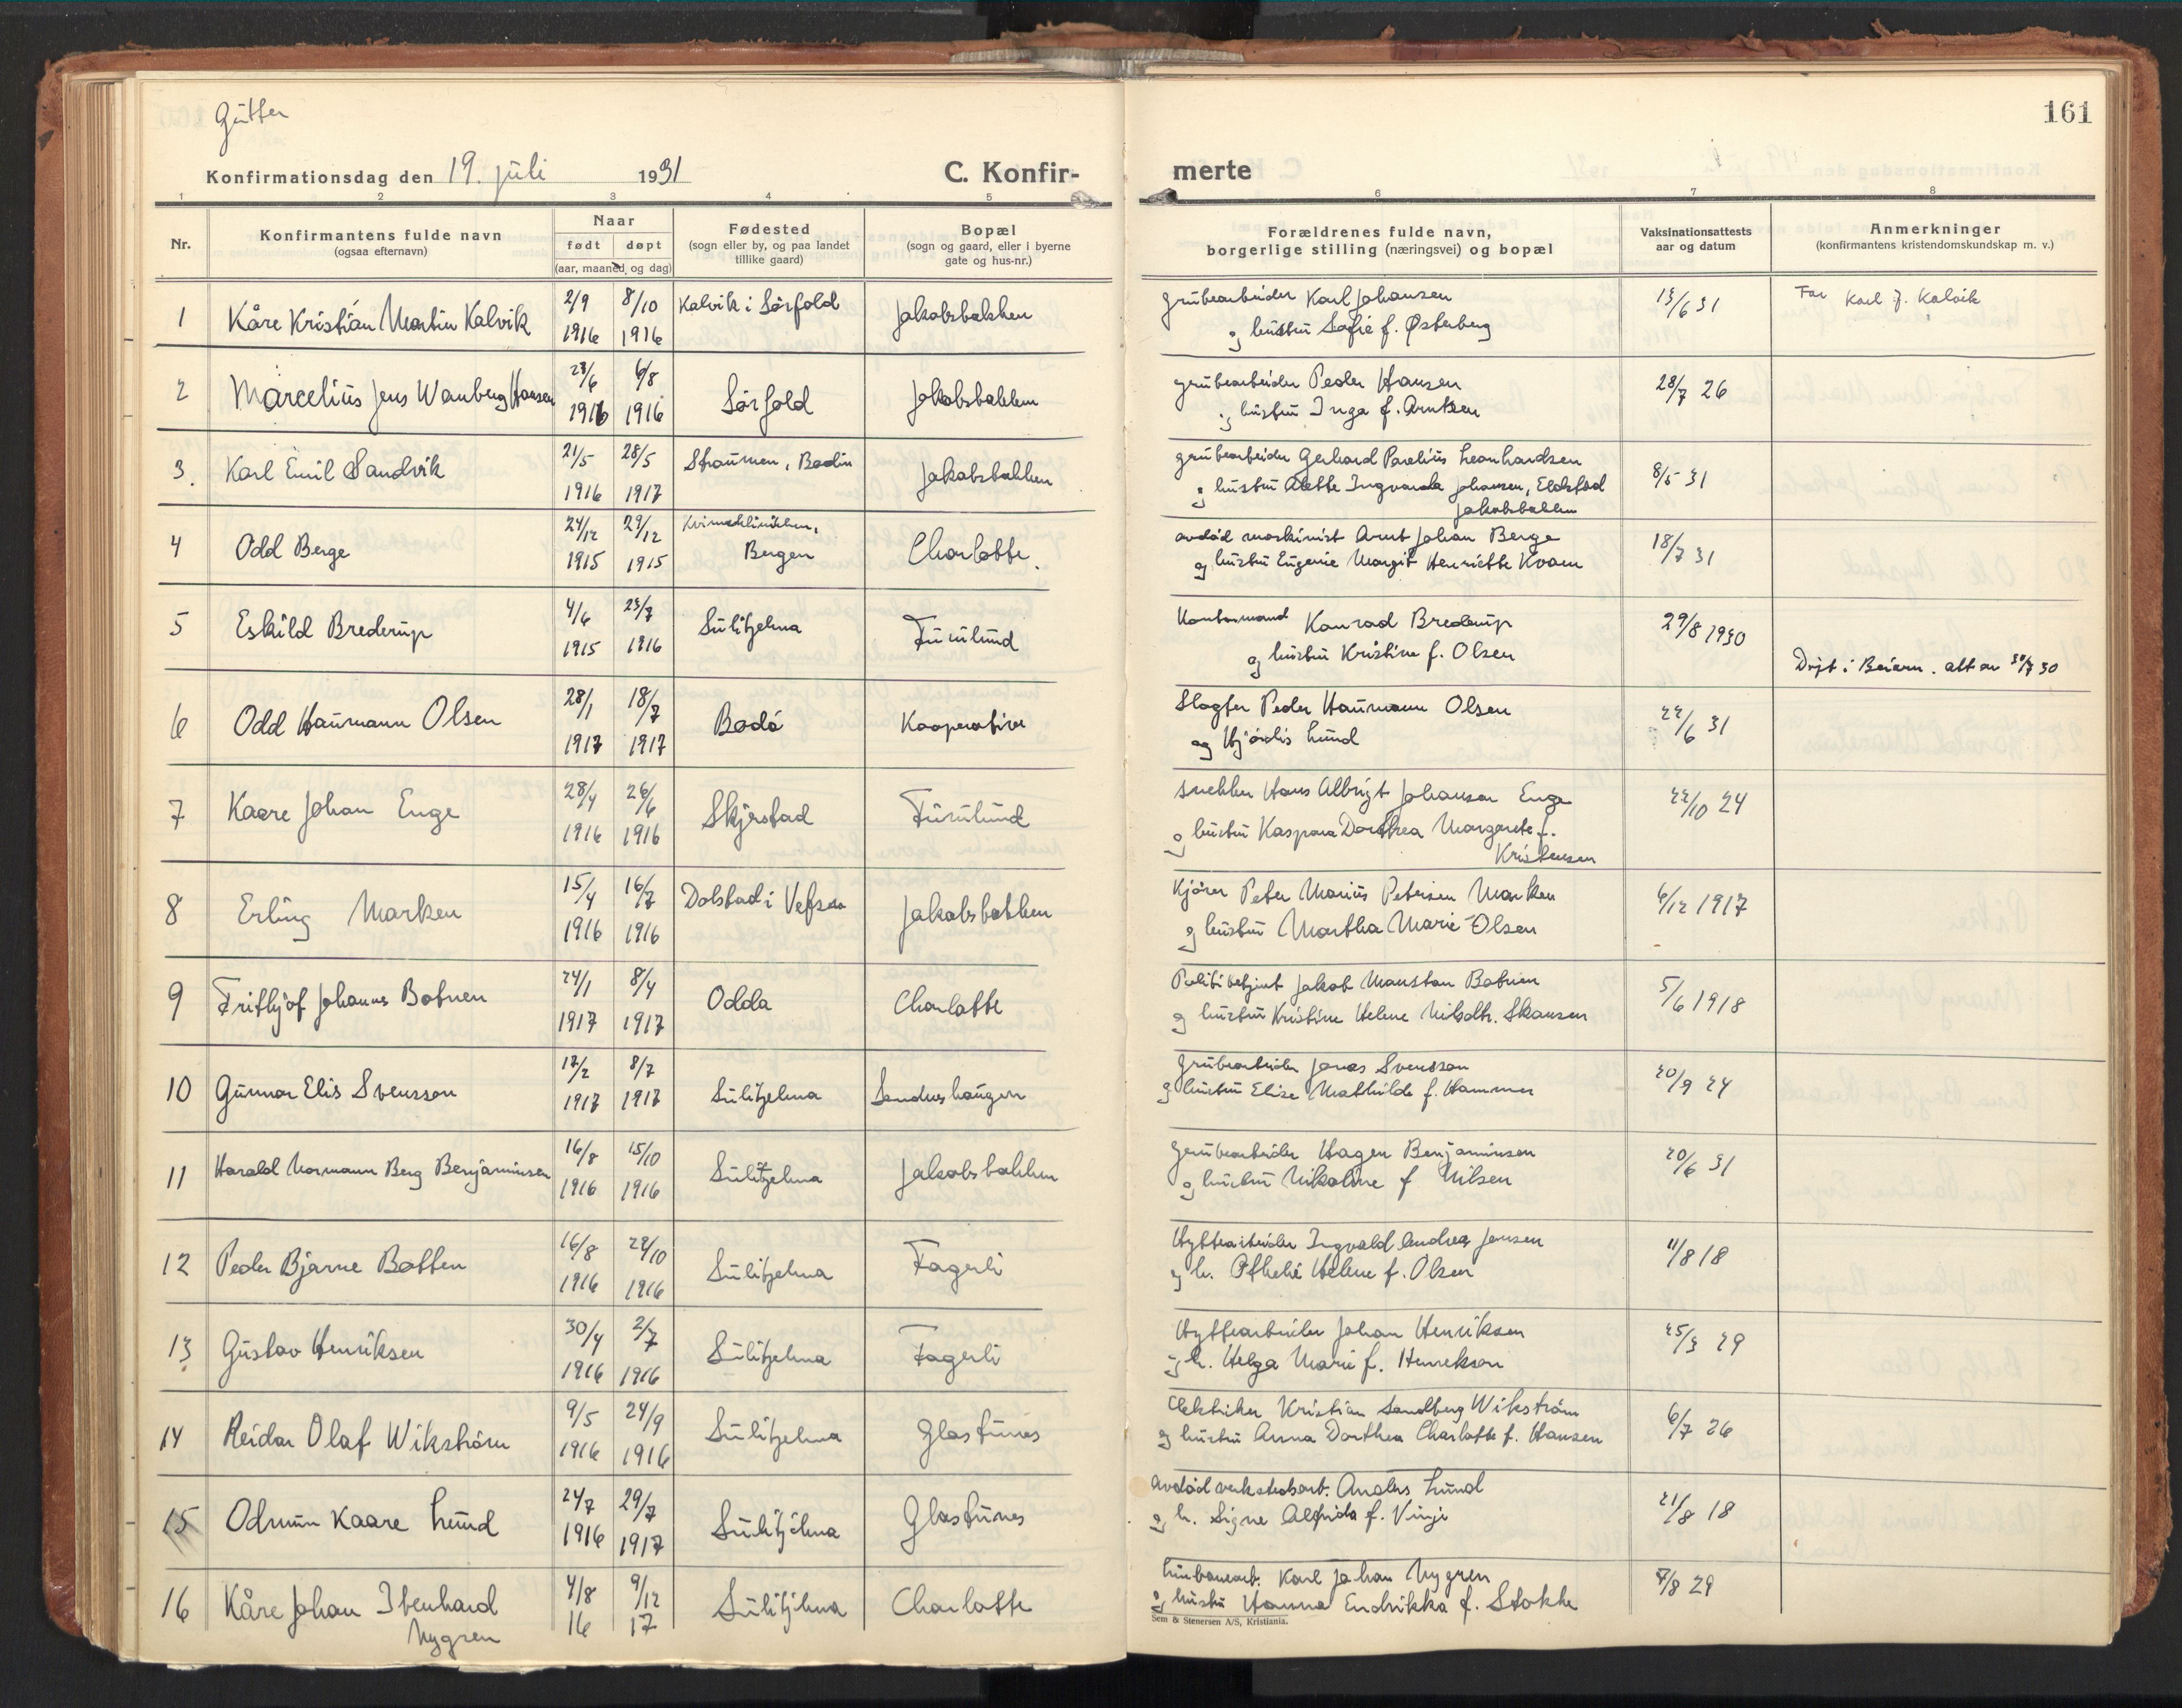 Gutter
161
Konfirmationsdag den 19. juli 1931
C. Konfirmerte
1 2 3 4 5 6 7 8
Nr.
Konfirmantens fulde navn (ogsaa efternavn)
Naar født døpt (aar, maaned og dag)
Fødested (sogn eller by, og paa landet tillike gaard)
Bopæl (sogn og gaard, eller i byerne gate og hus-nr.)
Forældrenes fulde navn, borgerlige stilling (næringsvei) og bopæl
Vaksinationsattests aar og datum
Anmerkninger (konfirmantens kristendomskundskap m. v.)
1 Kåre Kristian Martin Kalvik 2/9 1916 8/10 1916 Kalvik i Sørfold Jakobsbakken
grubearbeider Karl Johansen 13/6 31 Far Karl J. Kalvik
og hustru Sofie f. Østerberg
2 Marcelius Jens Wanberg Hansen 23/6 1916 6/8 1916 Sørfold Jakobsbakken
grubearbeider Peder Hansen 28/7 26
og hustru Inga f. Arntsen
3. Karl Emil Sandvik 21/5 1916 28/5 1917 Straumen, Bodin Jakobsbakken
grubearbeider Gerhard Parelius Leonhardsen 8/5 31
og hustru Alette Ingvarda Johansen, Eldstad
Jakobsbakken
4 Odd Berge 24/12 1915 29/12 1915 Kvinneklinikken, Bergen Charlotte.
avdød maskinist Arnt Johan Berge 18/7 31
og hustru Eugenie Margit Henriette Kvam
5 Eskild Brederup 4/6 1915 23/7 1916 Sulitjelma Furulund
Kontormand Konrad Brederup 29/8 1930
og hustru Kristine f. Olsen Døpt i Beiarn. att av 30/7 30
6 Odd Haumann Olsen 28/1 1917 18/7 1917 Bodø Kooperative
Slagter Peder Haumann Olsen 22/6 31
og Hjørdis Lund
7 Kaare Johan Enge 28/4 1916 26/6 1916 Skjerstad Furulund
snekker Hans Albrigt Johansen Enge 22/10 24
og hustru Kaspara Dorthea Margarete f.
Kristensen
8 Erling Marken 15/4 1916 16/7 1916 Dolstad i Vefsn Jakobsbakken
Kjører Peter Marius Petersen Marken 6/12 1917
og hustru Martha Marie Olsen
9 Frithjof Johannes Botnen 24/1 1917 8/4 1917 Odda Charlotte
Politibetjent Jakob Monstan Botnen 5/6 1918
og hustru Kristine Helene Nilsdtr. Skansen
10 Gunnar Elis Svensson 17/2 1917 8/7 1917 Sulitjelma Sandneshaugen
Grubearbeider Jonas Svensson 20/9 24
og hustru Elise Mathilde f. Hammer
11 Harald Normann Berg Benjaminsen 16/8 1916 15/10 1916 Sulitjelma Jakobsbakken
Grubearbeider Hagen Benjaminsen 20/6 31
og hustru Nikoline f Nilsen
12 Peder Bjarne Botten 16/8 1916 22/10 1916 Sulitjelma Fagerli
Hyttearbeider Ingvald Andreas Jensen 11/8 18
og h. Othelie Helene f. Olsen
13 Gustav Henriksen 30/4 1916 2/7 1916 Sulitjelma Fagerli
Hyttearbeider Johan Henriksen 25/3 29
og h. Helga Marie f. Henrekson
14 Reidar Olaf Wikstrøm 9/5 1916 24/9 1916 Sulitjelma Glastunes
Elektriker Kristian Sandberg Wikstrøm 6/7 26
og hustru Anna Dorthea Charlotte f. Hansen
15 Odmun Kaare Lund 24/7 1916 29/7 1917 Sulitjelma Glastunes
avdød verkstedsarb. Anders Lund 21/8 18
og h. Signe Alfrida f. Vinje
16 Kåre Johan Ibenhard 4/8 16 9/12 17 Sulitjelma Charlotte
Nygren
Karl Johan Nygren 7/8 29
og hustru Hanna Endrikka f. Stokke
Sem & Stenersen A/S, Kristiania.